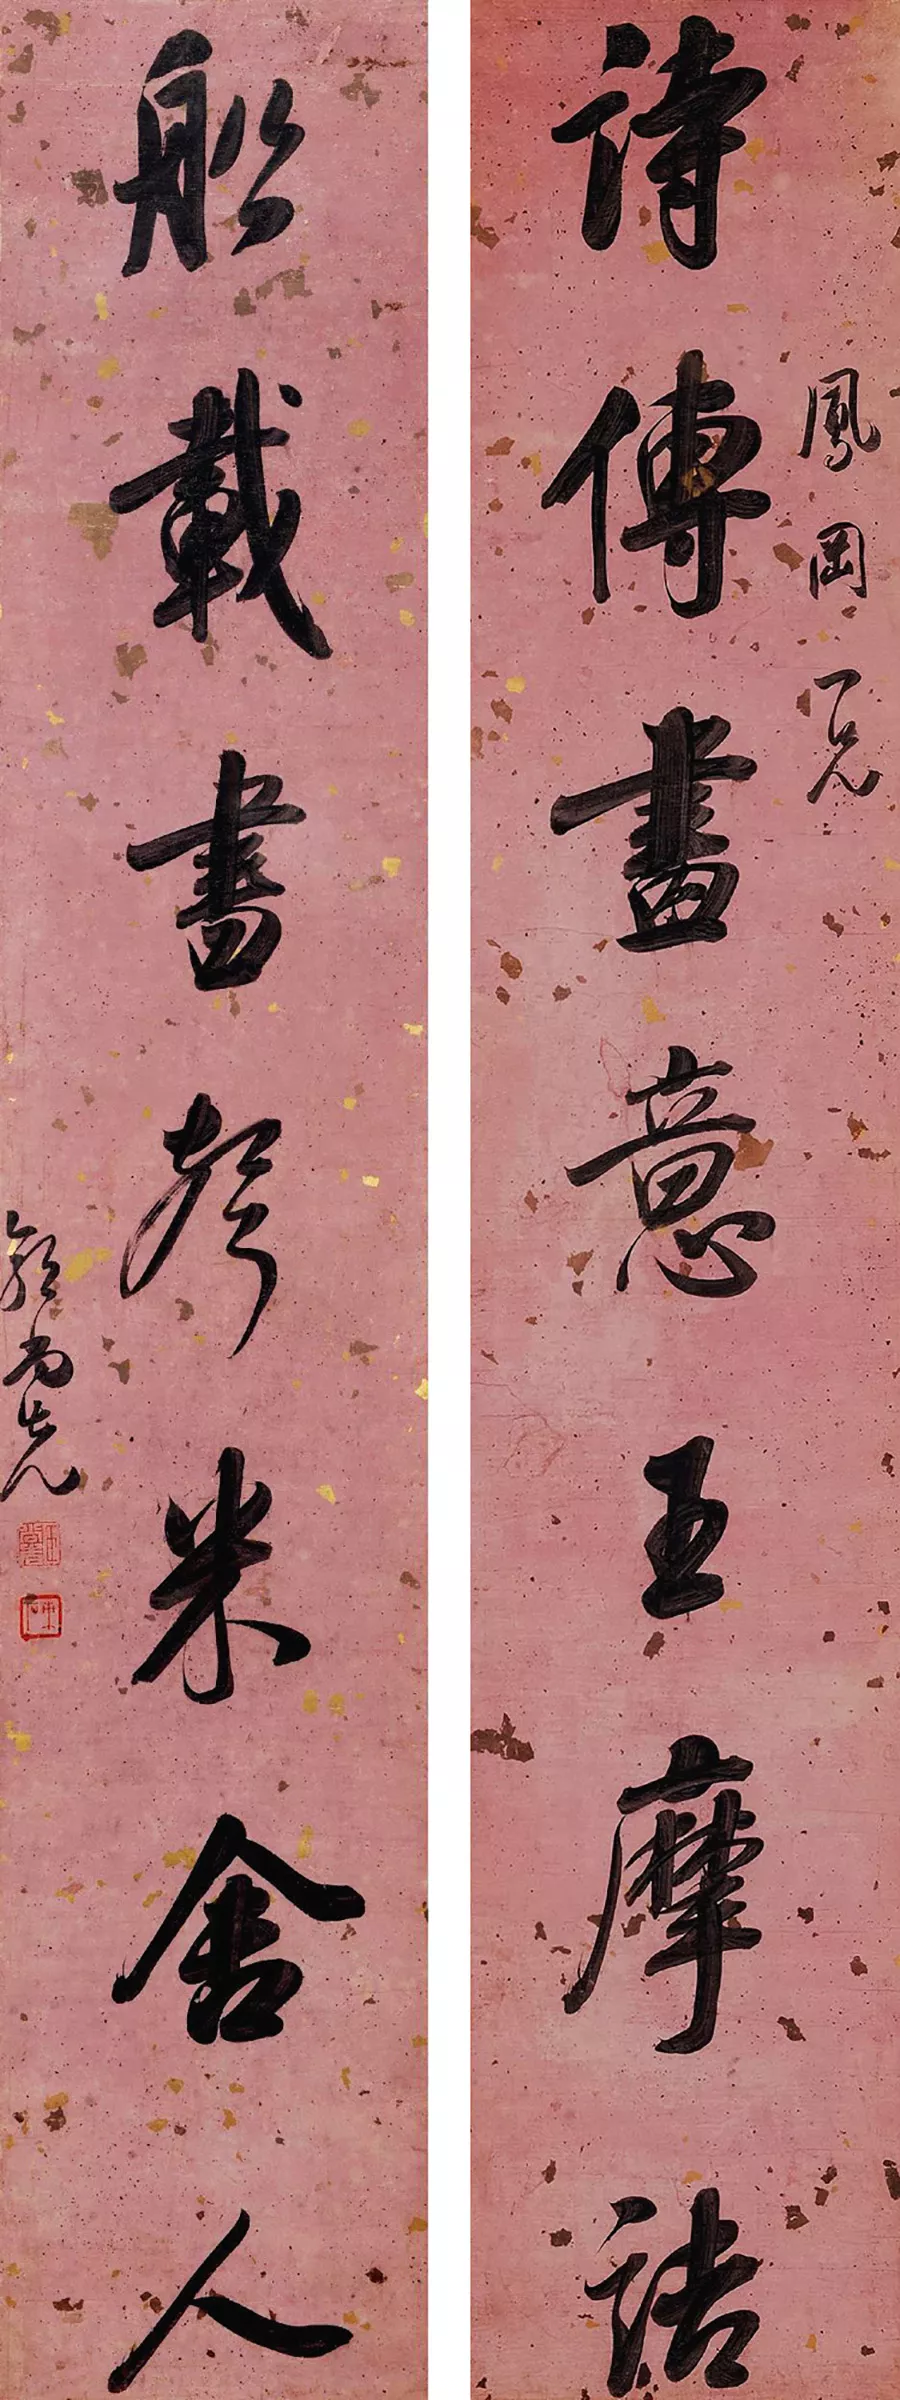 鳳岡一兄
詩傳畫意王摩詰
船載書聲米舍人
郭尚先